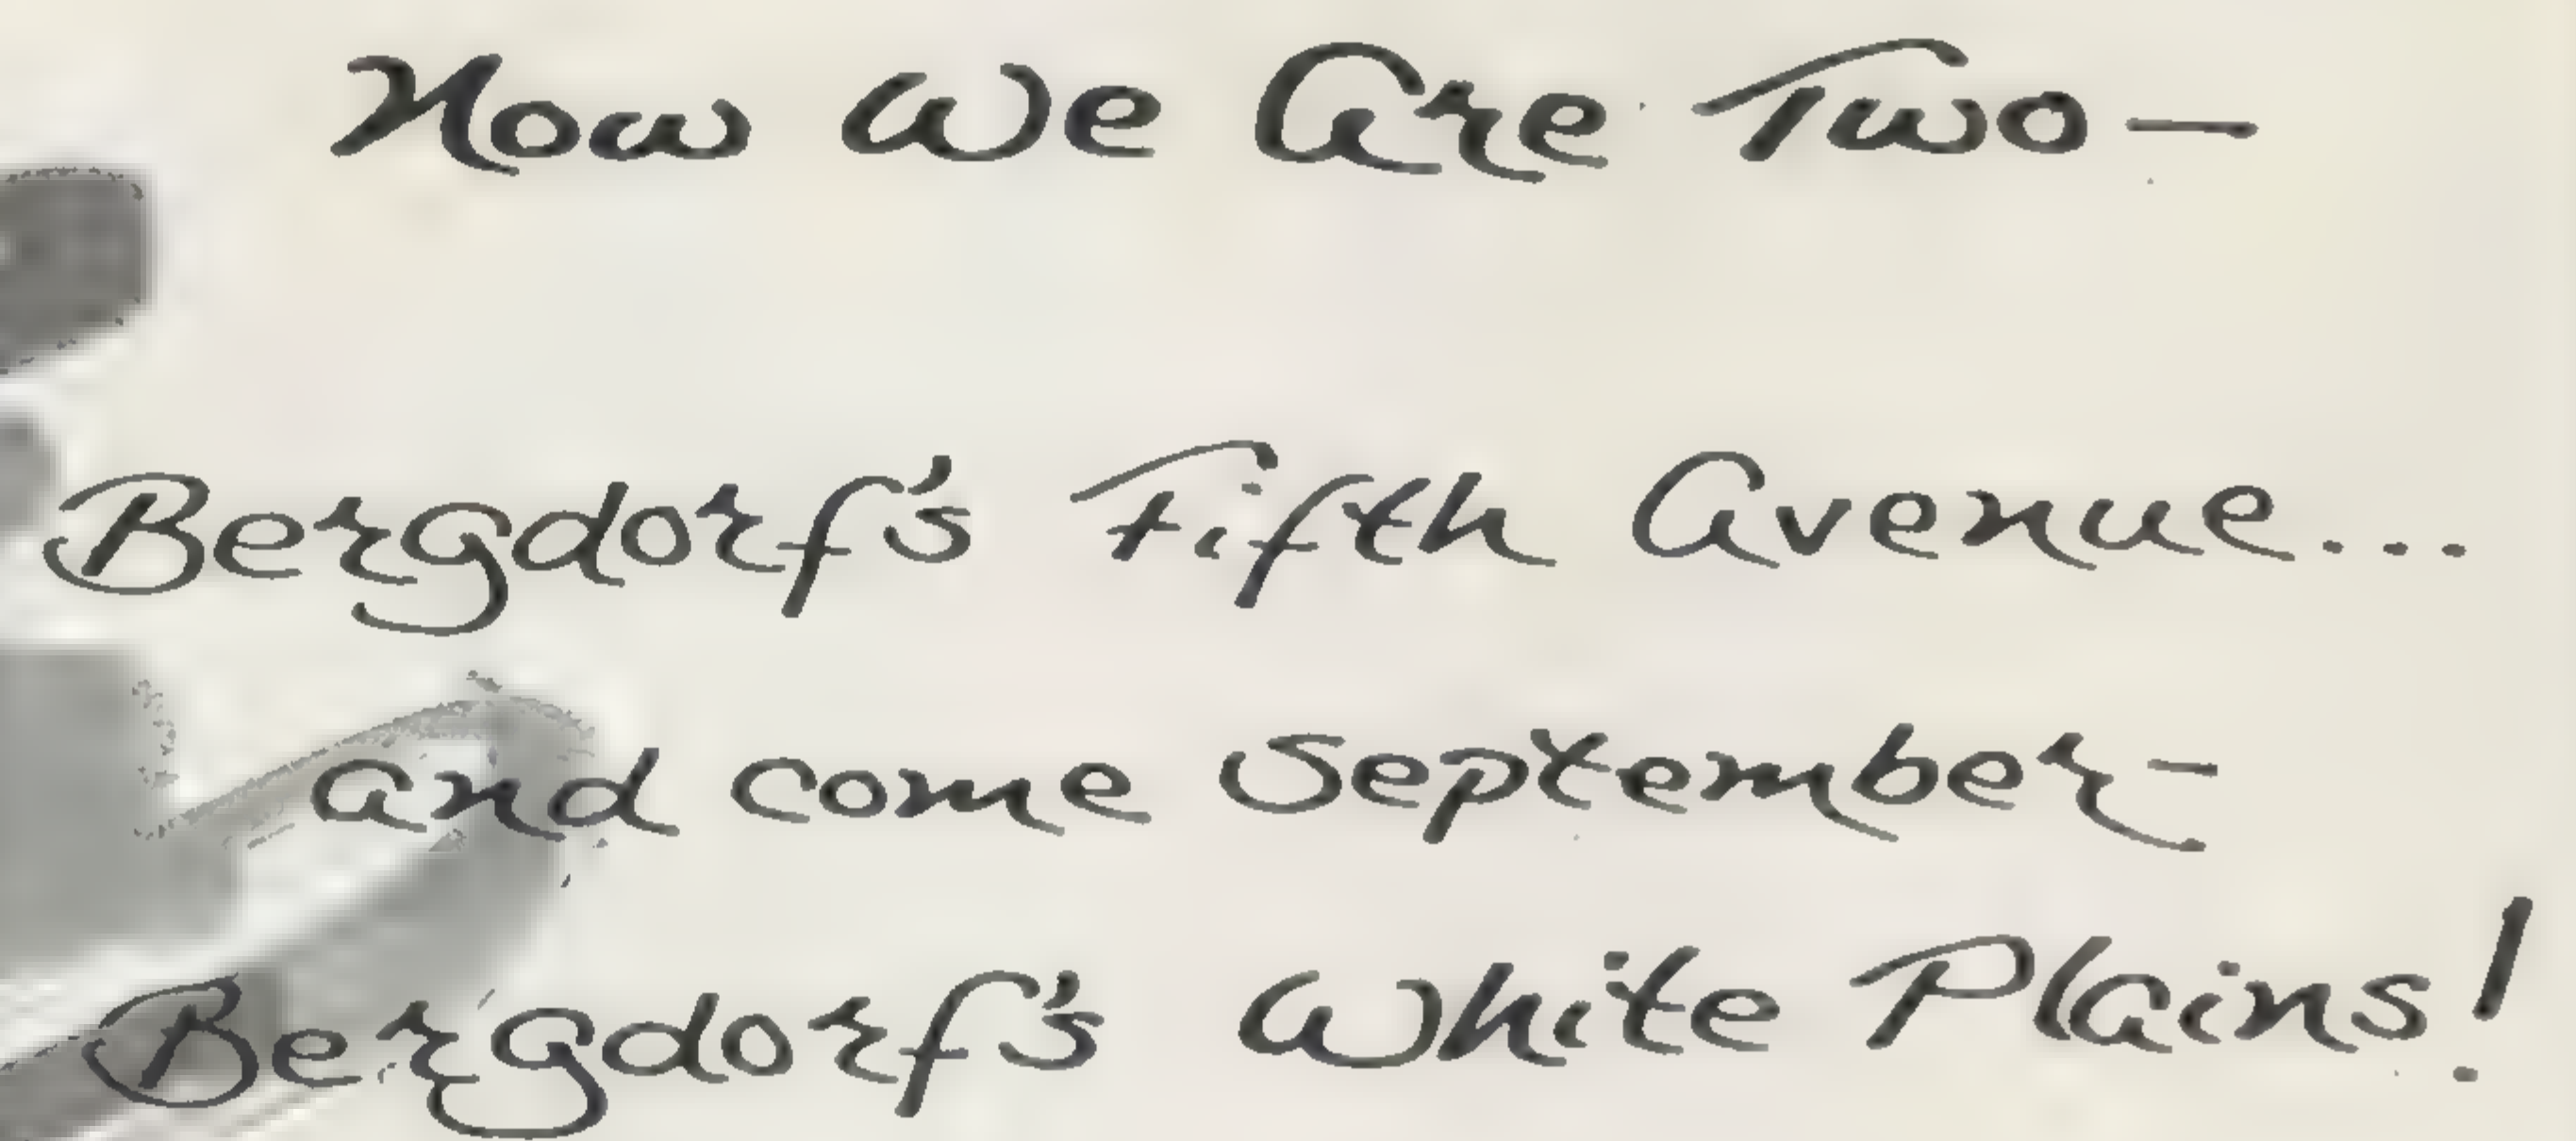 Now We Are Two—
Bergdorf's Fifth Avenue...
and come September-
Bergdorf's White Plains!